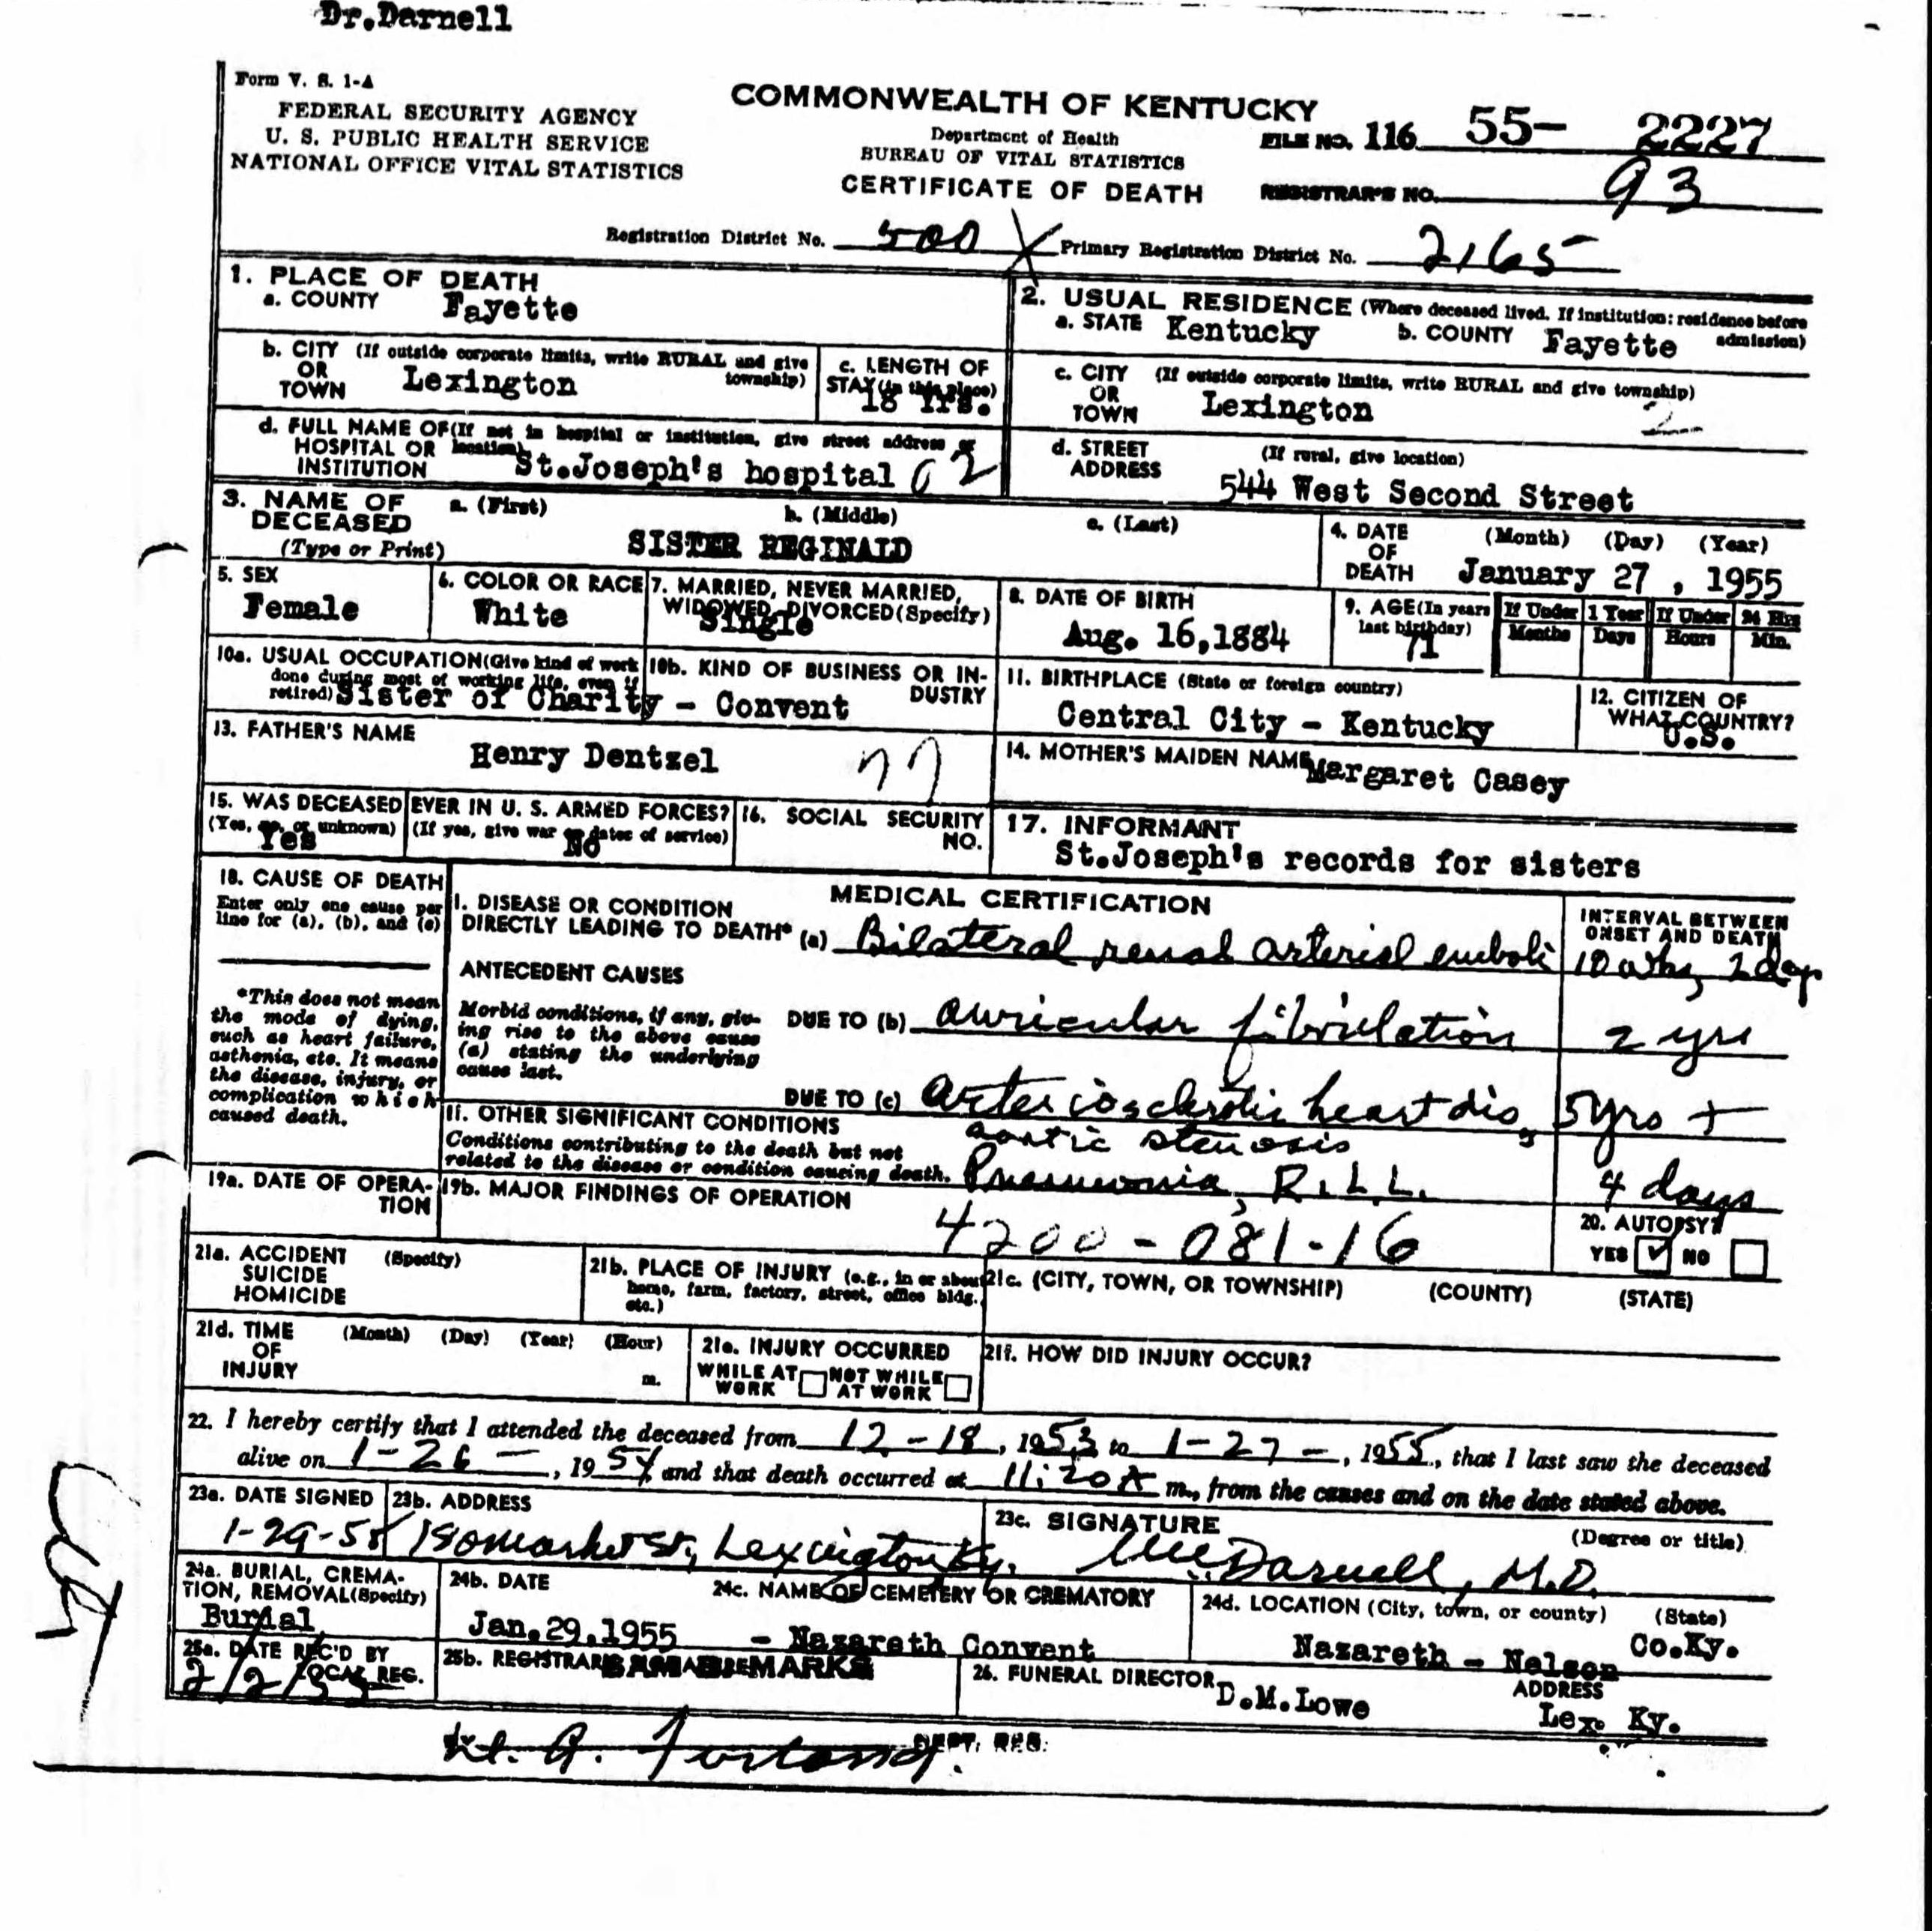 Dr.Darnell
Form V. S. 1-A
FEDERAL SECURITY AGENCY
U. S. PUBLIC HEALTH SERVICE
NATIONAL OFFICE VITAL STATISTICS
COMMONWEALTH OF KENTUCKY
Department of Health
BUREAU OF VITAL STATISTICS
CERTIFICATE OF DEATH
FILE NO. 116 55- 2227
REGISTRAR'S NO. 93
Registration District No. 500 X Primary Registration District No. 2165
1. PLACE OF DEATH
a. COUNTY Fayette
2. USUAL RESIDENCE (Where deceased lived. If institution: residence before admission)
a. STATE Kentucky b. COUNTY Fayette
b. CITY OR TOWN (If outside corporate limits, write RURAL and give township) Lexington
c. LENGTH OF STAY (in this place) 18 Yrs.
c. CITY OR TOWN (If outside corporate limits, write RURAL and give township) Lexington 2
d. FULL NAME OF HOSPITAL OR INSTITUTION (If not in hospital or institution, give street address or location) St.Joseph's hospital 02
d. STREET ADDRESS (If rural, give location) 544 West Second Street
3. NAME OF DECEASED (Type or Print) a. (First) b. (Middle) c. (Last)
SISTER REGINALD
4. DATE OF DEATH (Month) (Day) (Year) January 27 , 1955
5. SEX Female
6. COLOR OR RACE White
7. MARRIED, NEVER MARRIED, WIDOWED, DIVORCED (Specify) Single
8. DATE OF BIRTH Aug. 16,1884
9. AGE (In years last birthday) 71
If Under 1 Year Months Days If Under 24 Hrs Hours Min.
10a. USUAL OCCUPATION (Give kind of work done during most of working life, even if retired) Sister of Charity
10b. KIND OF BUSINESS OR INDUSTRY - Convent
11. BIRTHPLACE (State or foreign country) Central City - Kentucky
12. CITIZEN OF WHAT COUNTRY? U.S.
13. FATHER'S NAME Henry Dentzel 77
14. MOTHER'S MAIDEN NAME Margaret Casey
15. WAS DECEASED EVER IN U. S. ARMED FORCES?
(Yes, no, or unknown) Yes (If yes, give war or dates of service) No
16. SOCIAL SECURITY NO.
17. INFORMANT St.Joseph's records for sisters
18. CAUSE OF DEATH
Enter only one cause per line for (a), (b), and (c)
*This does not mean the mode of dying, such as heart failure, asthenia, etc. It means the disease, injury, or complication which caused death.
MEDICAL CERTIFICATION
INTERVAL BETWEEN ONSET AND DEATH
I. DISEASE OR CONDITION DIRECTLY LEADING TO DEATH* (a) Bilateral renal arterial emboli 10 wks, 2 days
ANTECEDENT CAUSES
Morbid conditions, if any, giving rise to the above cause (a) stating the underlying cause last.
DUE TO (b) auricular fibrillation 2 yrs
DUE TO (c) Arteriosclerotic heart dis, 5yrs +
aortic stenosis
II. OTHER SIGNIFICANT CONDITIONS
Conditions contributing to the death but not related to the disease or condition causing death. Pneumonia, R.L.L. 4 days
19a. DATE OF OPERATION
19b. MAJOR FINDINGS OF OPERATION
4200-081-16
20. AUTOPSY? YES ✓ NO
21a. ACCIDENT SUICIDE HOMICIDE (Specify)
21b. PLACE OF INJURY (e.g., in or about home, farm, factory, street, office bldg. etc.)
21c. (CITY, TOWN, OR TOWNSHIP) (COUNTY) (STATE)
21d. TIME OF INJURY (Month) (Day) (Year) (Hour) m.
21e. INJURY OCCURRED WHILE AT WORK NOT WHILE AT WORK
21f. HOW DID INJURY OCCUR?
22. I hereby certify that I attended the deceased from 12-18, 1953 to 1-27-, 1955, that I last saw the deceased
alive on 1-26-, 1954 and that death occurred at 11:20A m., from the causes and on the date stated above.
23a. DATE SIGNED 1-29-55
23b. ADDRESS 180 Market St, Lexington Ky.
23c. SIGNATURE (Degree or title) Darnell, M.D.
24a. BURIAL, CREMATION, REMOVAL (Specify) Burial
24b. DATE Jan.29.1955
24c. NAME OF CEMETERY OR CREMATORY - Nazareth Convent
24d. LOCATION (City, town, or county) (State) Nazareth - Nelson Co.Ky.
25a. DATE REC'D BY LOCAL REG. 2/2/55
25b. REGISTRAR'S
26. FUNERAL DIRECTOR D.M.Lowe
ADDRESS Lex. Ky.